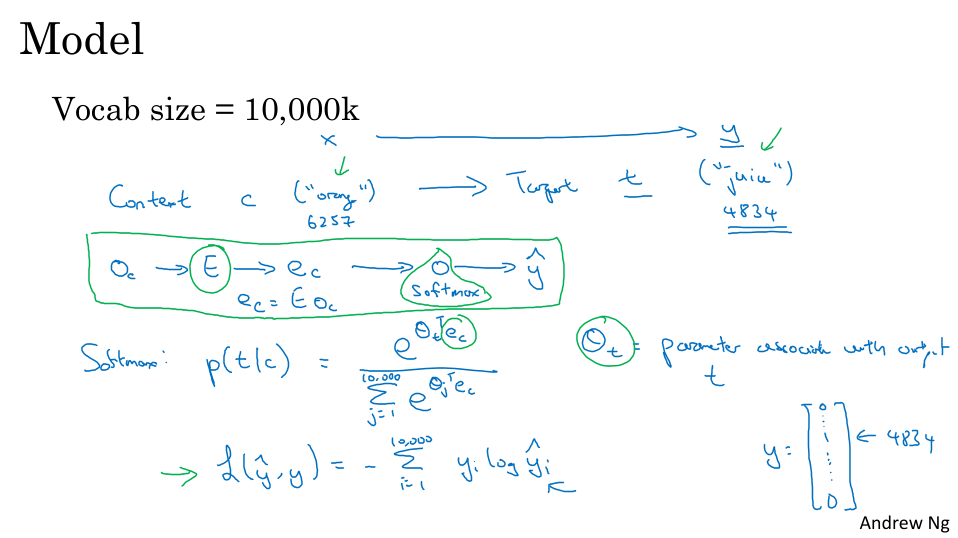 Model
Vocab size = 10,000k
x → y
Content c ("orange") → Target t ("juice")
6257 4834
O_c → E → e_c → O → ŷ
softmax
e_c = E O_c
Softmax: p(t|c) = e^{θ_t^T e_c} / Σ_{j=1}^{10,000} e^{θ_j^T e_c}
θ_t = parameter associate with output t
L(ŷ, y) = - Σ_{i=1}^{10,000} y_i log ŷ_i
y = [0 ⋮ 1 ⋮ 0] ← 4834
Andrew Ng